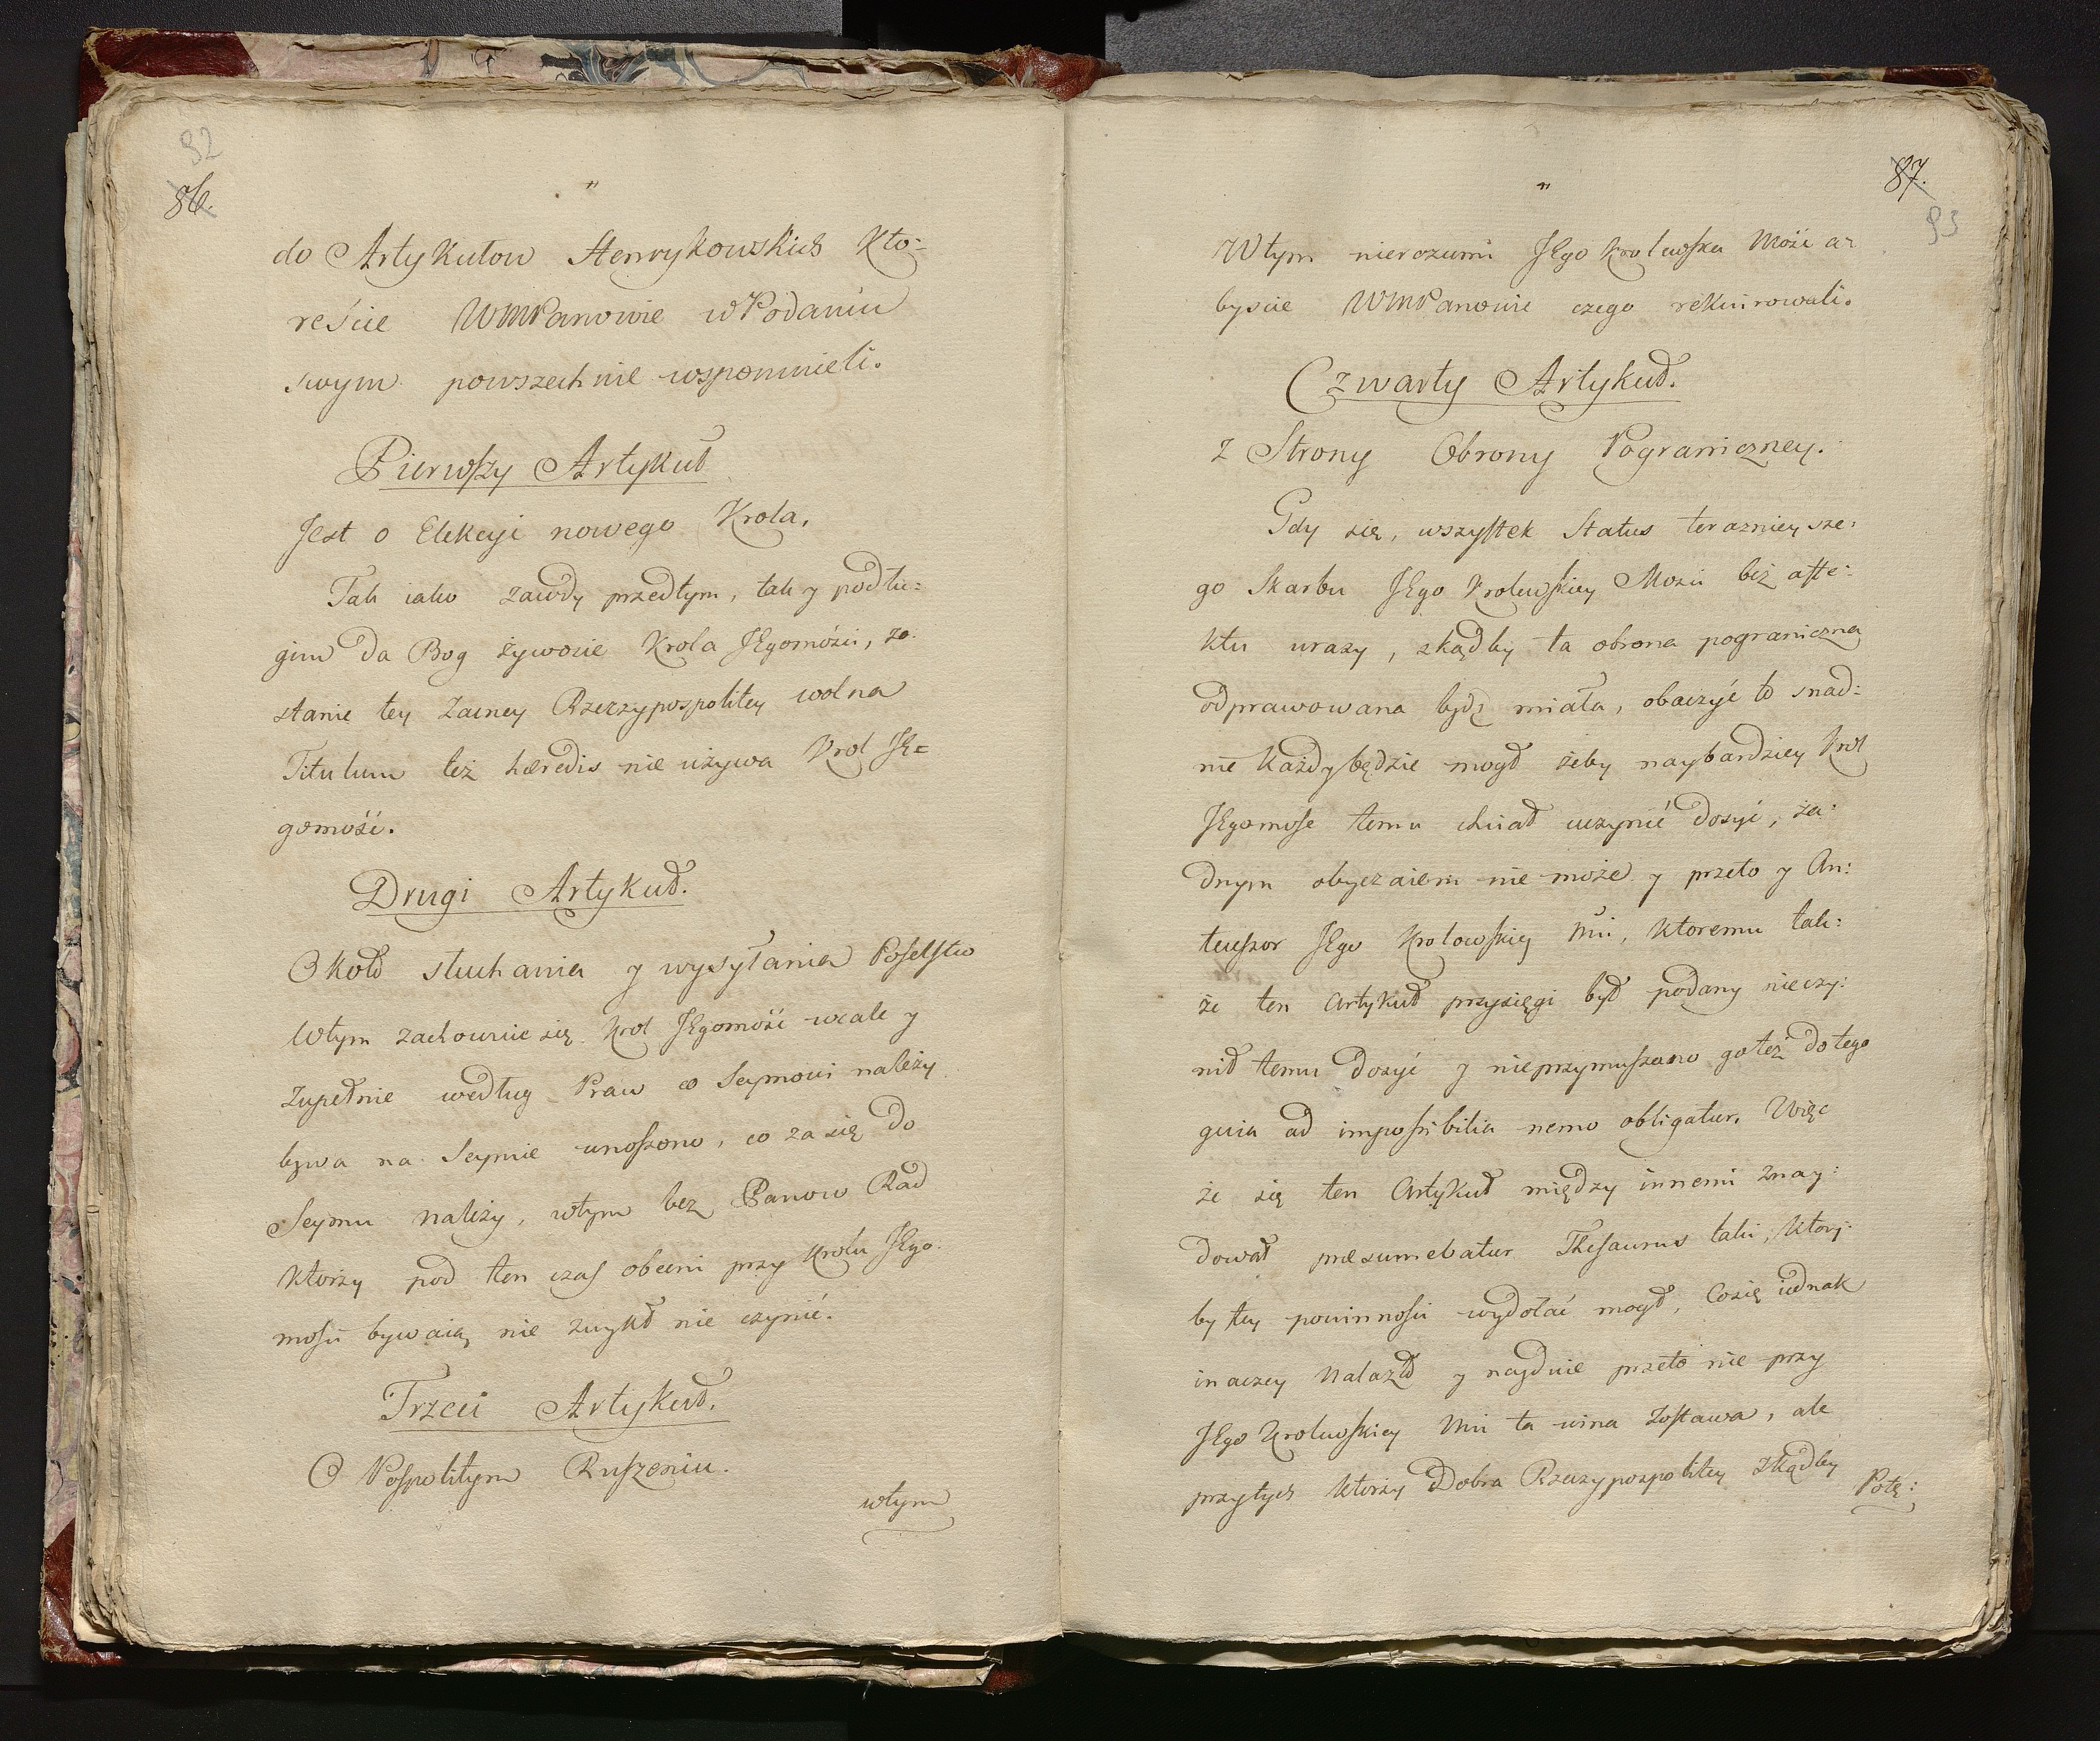 92
86.
do Artykułow Henrykowskich Kto:
reście WMPanowie w Podaniu
swym powszechnie wspomnieli.
Pierwszy Artykuł
Jest o Elekcyi nowego Krola.
Tak iako zawdy przedtym, tak y podłu:
gim da Bog żywocie Krola JEgomości, zo:
stanie tey zacney Rzeczypospolitey wolna
Titulum też hæredis nie używa Krol JE=
gomość.
Drugi Artykuł.
Około słuchania y wysyłania Poselstw
Wtym zachowuie się Krol JEgomość wcale y
zupełnie według Praw co Seymowi należy
bywa na Seymie wnoszono, co zasię do
Seymu należy, wtym bez Panow Rad
Ktorzy pod ten czas obecni przy Krolu JEgo:
mości bywaią nie zwykł nie czynić.
Trzeci Artykuł.
O Pospolitym Ruszeniu.
wtym
87.
93
Wtym nierozumi JEgo Krolewska Mość a:
byscie WMPanowie czego rekwirowali.
Czwarty Artykuł.
z Strony Obrony Pograniczney.
Gdy się, wszystek Status teraznieysze:
go Skarbu JEgo Krolewskiey Mości beż affe:
ktu uważy, zkądby ta obrona pograniczna
odprawowana bydź miała, obaczyć to snad:
nie Każdy będzie mogł żeby naybardziey Krol
JEgomość temu chciał uczynić dosyć, ża:
dnym obyczaiem nie może y przeto y An:
tecessor JEgo Krolowskiey Mci, Ktoremu tak:
że ten Artykuł przysięgi był podany nieczy:
nił temu dosyć y nieprzymuszano go też do tego
quia ad impossibilia nemo obligatur. Więc
że się ten Artykuł między innemi znay:
dował præsumebatur Thesaurus taki, Ktory:
by tey powinności wydołać mogł, Co się iednak
inaczey Nalazło y nayduie przeto nie przy
JEgo Krolewskiey Mci ta wina zostawa, ale
przytych Ktorzy Dobra Rzeczypospolitey zkądby
Potę: